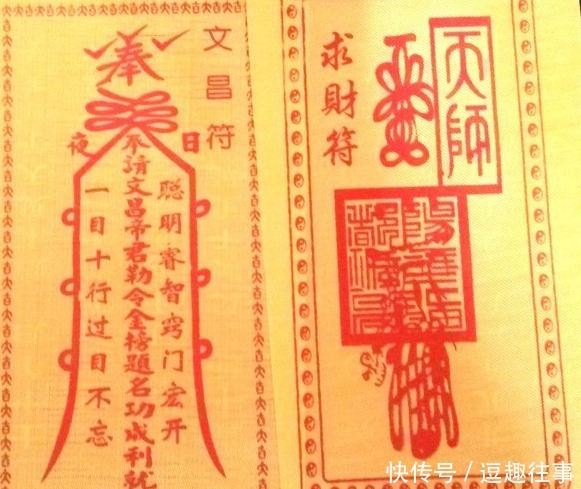 文昌符
奉
日
夜
聪明睿智窍门宏开
奉請文昌帝君勤令金榜題名功成利就
一目十行过目不忘
天師
求財符
快传号／逗趣往事